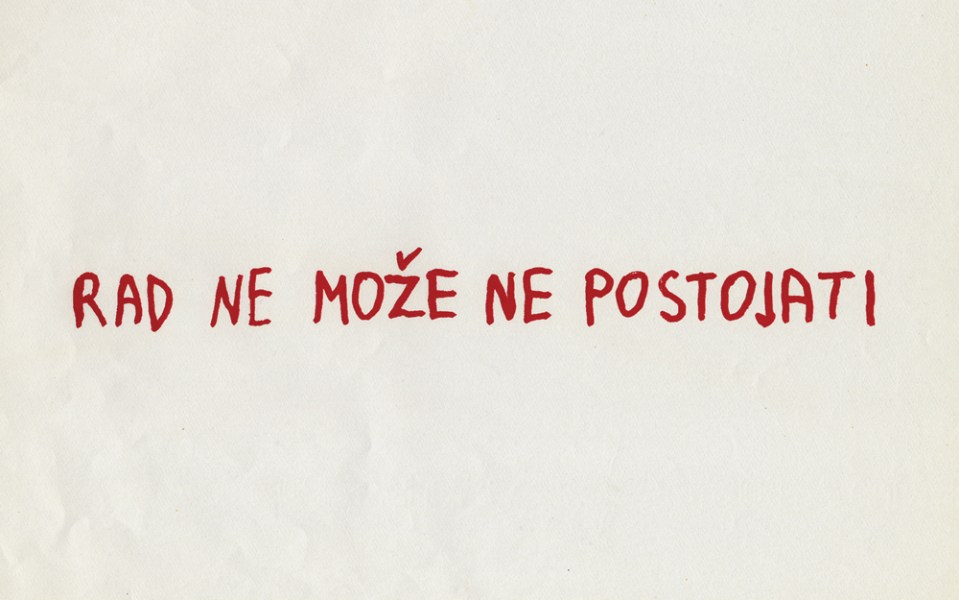 RAD NE MOŽE NE POSTOJATI